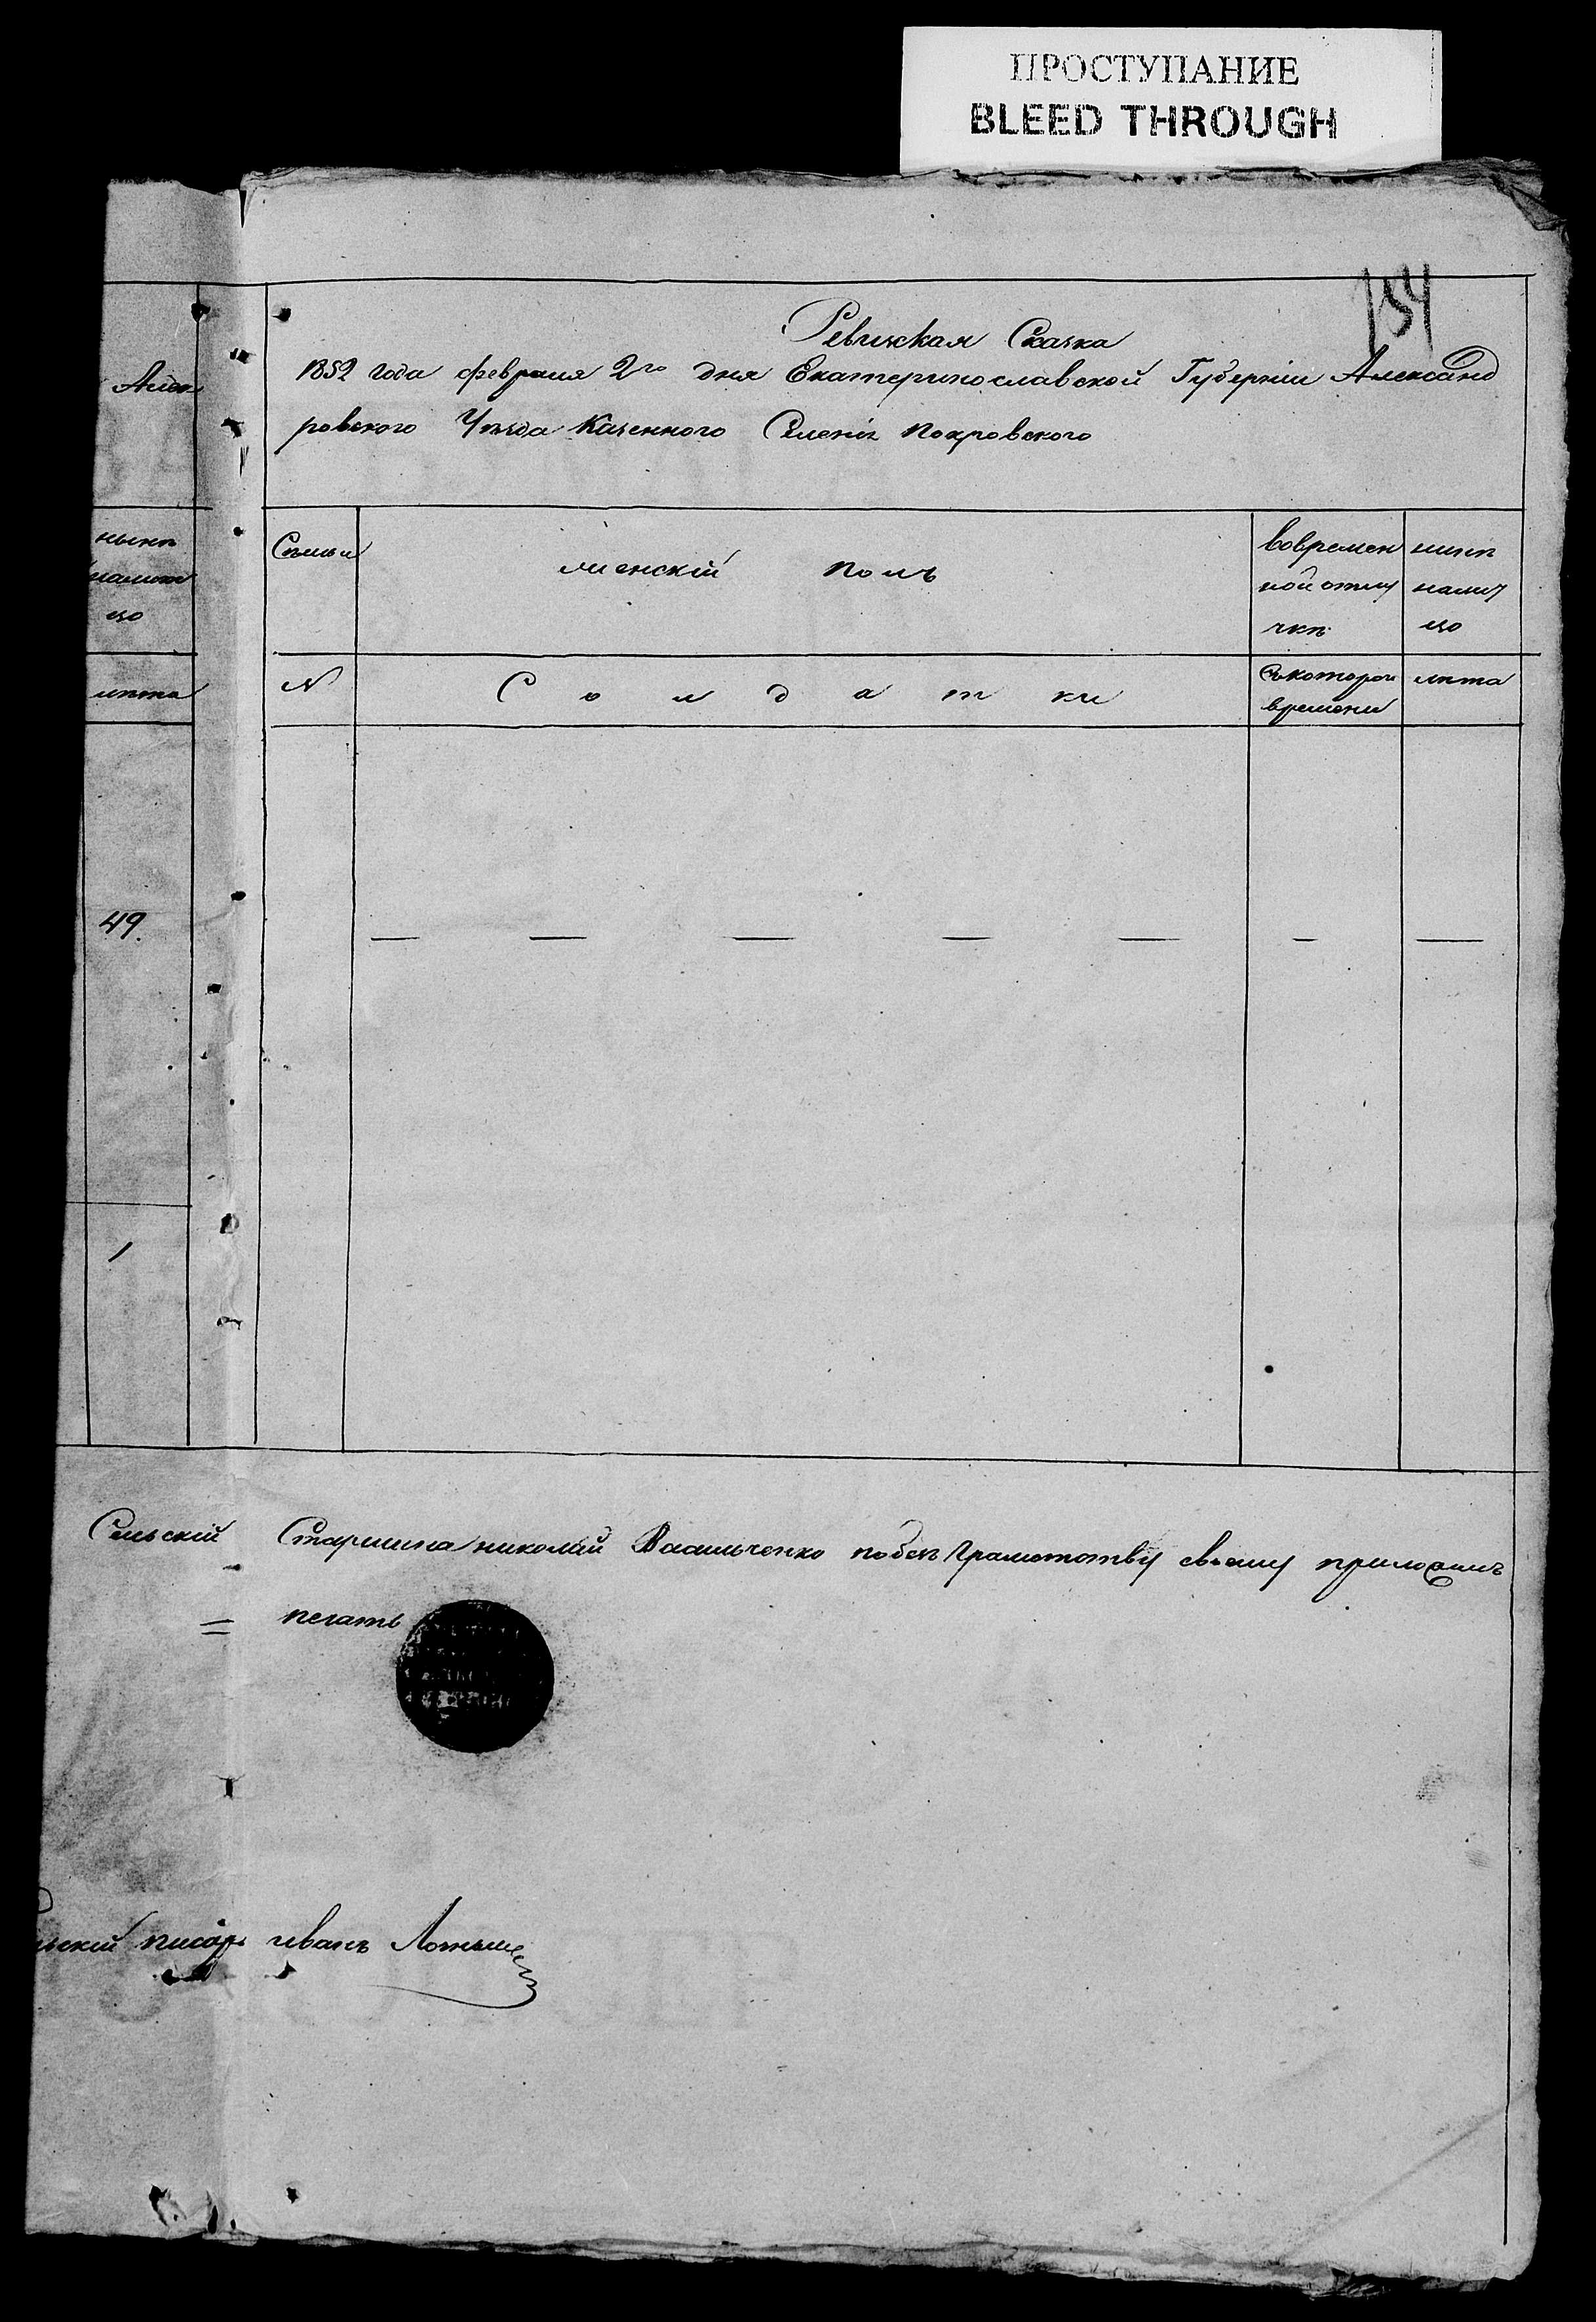 ПРОСТУПАНИЕ
BLEED THROUGH
154
Ревизская Сказка
1852 года февраля 2го дня Екатеринославской Губерніи Александ
ровского Уѣзда Казенного Селенія Покровского
Алек
нынѣ
налич
цо
лѣта
49.
1
Семьи
женскій полъ
вовремен
ной отлу
чкѣ
нынѣ
налиц
цо
N
Солдатки
Съкоторого
времени
лѣта
— — — — — — —
Сельскій Старшина николай Васильченко побезграмотству своему приложилъ
= печать
писарь иванъ